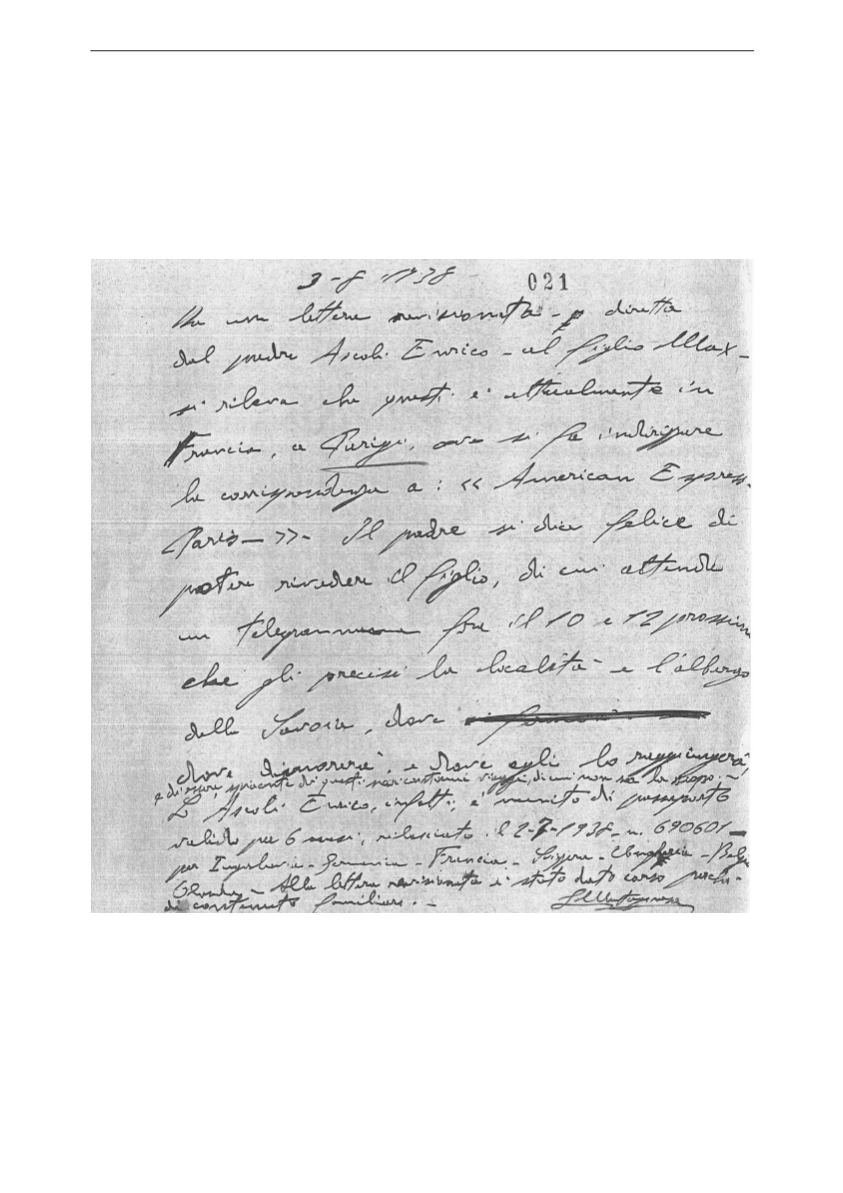 3-8-1938 - 021
Da una lettera revisionata - diretta
dal padre Ascoli Enrico - al figlio Max -
si rileva che questi è attualmente in
Francia, a Parigi, ove si fa indirizzare
la corrispondenza a: « American Express
Paris - ». Il padre si dice felice di
poter rivedere il figlio, di cui attende
un telegramma fra il 10 e 12 prossimi
che gli precisi la località e l'albergo
della Savoia, dove
dove dimorerà, e dove egli lo raggiungerà,
e di essere di questi viaggi, di cui non sa lo scopo. -
L'Ascoli Enrico, infatti, è munito di passaporto
valido per 6 mesi, rilasciato il 2-7-1938 - n. 690601 -
per Inghilterra - Germania - Francia - Svizzera - Ungheria - Belgio
Olanda - Alla lettera revisionata è stato dato corso perché
di contenuto familiare. -